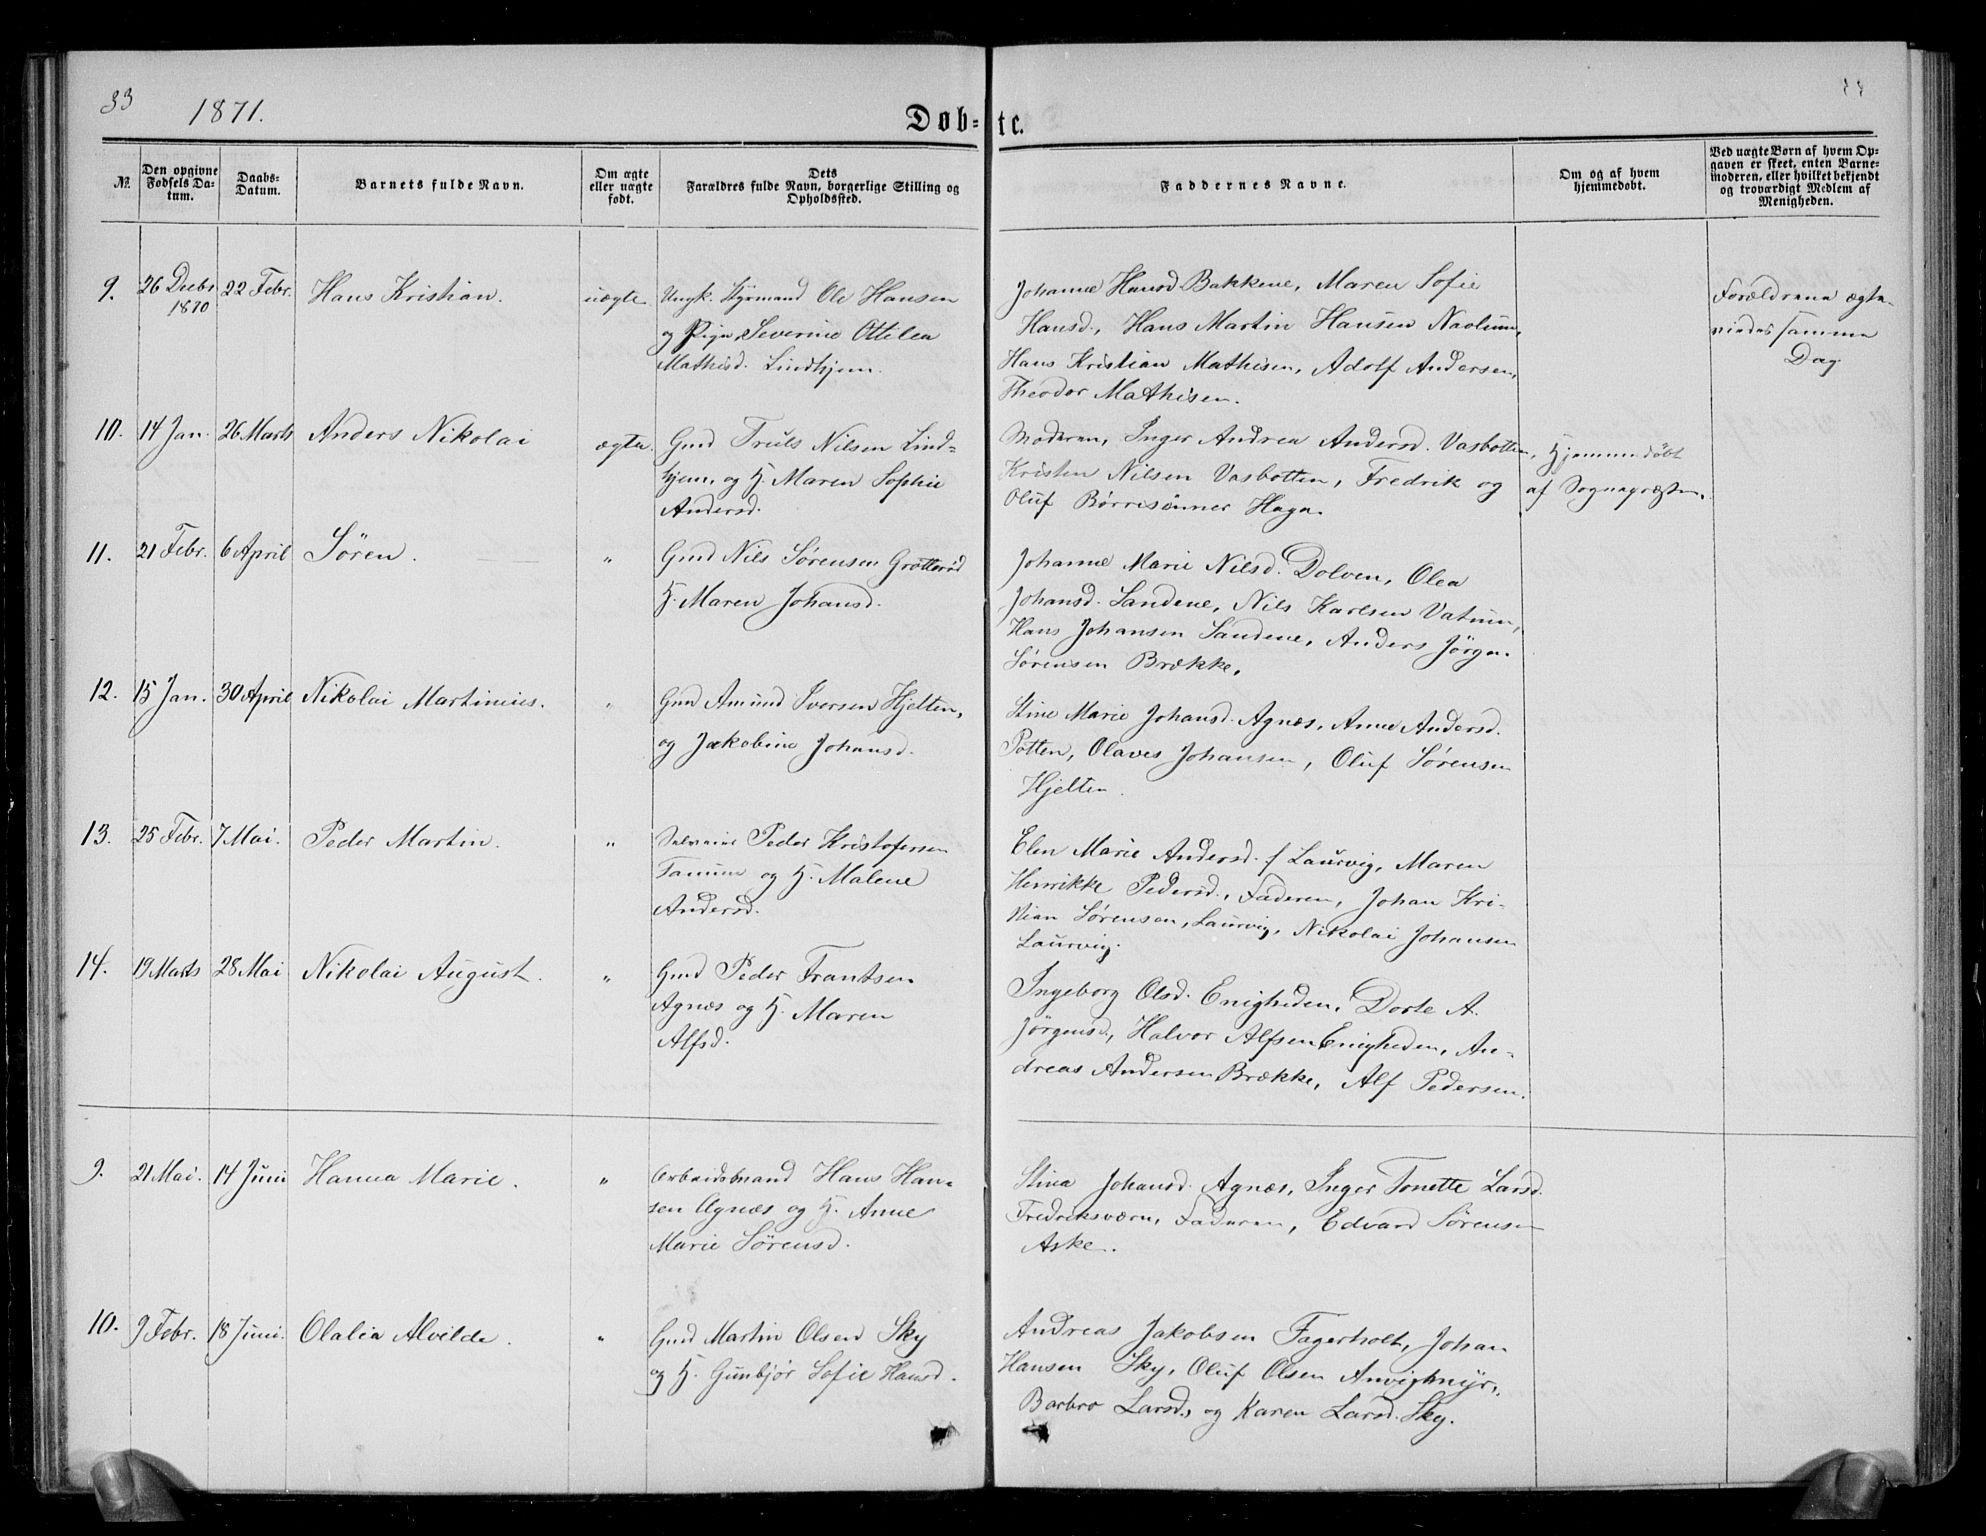 33
1871.
Døb-te.
33
№
Den opgivne Fødsels Da-tum.
Daabs-Datum.
Barnets fulde Navn.
Om ægte eller uægte født.
Dets Farældres fulde Navn, borgerlige Stilling og Opholdssted.
Faddernes Navne.
Om og af hvem hjemmedøbt.
Ved uægte Børn af hvem Op-gaven er skeet, enten Barne-moderen, eller hvilket bekjendt og troværdigt Medlem af Menigheden.
9. 26 Decbr 1870 22 Febr. Hans Kristian. uægte
Ungk. Styrmand Ole Hansen
og Pige Severine Ottilea
Mathisd. Lindhjem.
Johanne Hansd Bakkene, Maren Sofie
Hansd., Hans Martin Hansen Naolum,
Hans Kristian Mathisen, Adolf Andersen,
Theodor Mathisen.
Forældrene ægte-
viedes samme
Dag
10. 14 Jan. 26 Marts Anders Nikolai ægte.
Gmd Truls Nilsen Lind-
hjem, og H. Maren Sophie
Andersd.
Moderen, Inger Andrea Andersd. Vasbotten,
Kristen Nilsen Vasbotten, Fredrik og
Oluf Børresønner Haga.
Hjemmedøbt
af Sognepræsten.
11. 21 Febr. 6 April Søren. "
Gmd Nils Sørensen Grøtterød
H. Maren Johansd.
Johanne Marie Nilsd. Dolven, Olea
Johansd. Sandene, Nils Karlsen Vatnum,
Hans Johansen Sandene, Anders Jørgn.
Sørensen Brække.
12. 15 Jan. 30 April Nikolai Martinius. "
Gmd Amund Iversen Hjelten,
og Jakobine Johansd.
Stine Marie Johansd. Agnæs, Anne Andersd.
Potten, Olaves Johansen, Oluf Sørensen
Hjelten.
13. 25 Febr. 7 Mai. Peder Martin. "
Selveier Peder Kristofersen
Tanum og H. Malene
Andersd.
Elen Marie Andersd. f Laurvig, Maren
Henrikke Pedersd., Faderen, Johan Kri-
stian Sørensen, Laurvig, Nikolai Johansen
Laurvig.
14. 19 Marts 28 Mai Nikolai August. "
Gmd Peder Frantsen
Agnæs og H. Maren
Alfsd.
Ingeborg Olsd. Enigheden, Dorte A.
Jørgensd., Halvor Alfsen Enigheden, An-
dreas Andersen Brække, Alf Pedersen.
9. 21 Mai. 14 Juni Hanna Marie. "
Arbeidsmand Hans Han-
sen Agnæs og H. Anne
Marie Sørensd.
Stina Johansd. Agnæs, Inger Tonette Larsd.
Fredriksværn, Faderen, Edvard Sørensen
Aske.
10. 9 Febr. 18 Juni. Olalia Alvilde. "
Gmd Martin Olsen Sky
og H. Gunbjør Sofie Hansd.
Andreas Jakobsen Fagerholt, Johan
Hansen Sky, Oluf Olsen Anvigmyr,
Barbro Larsd, og Karen Larsd. Sky.